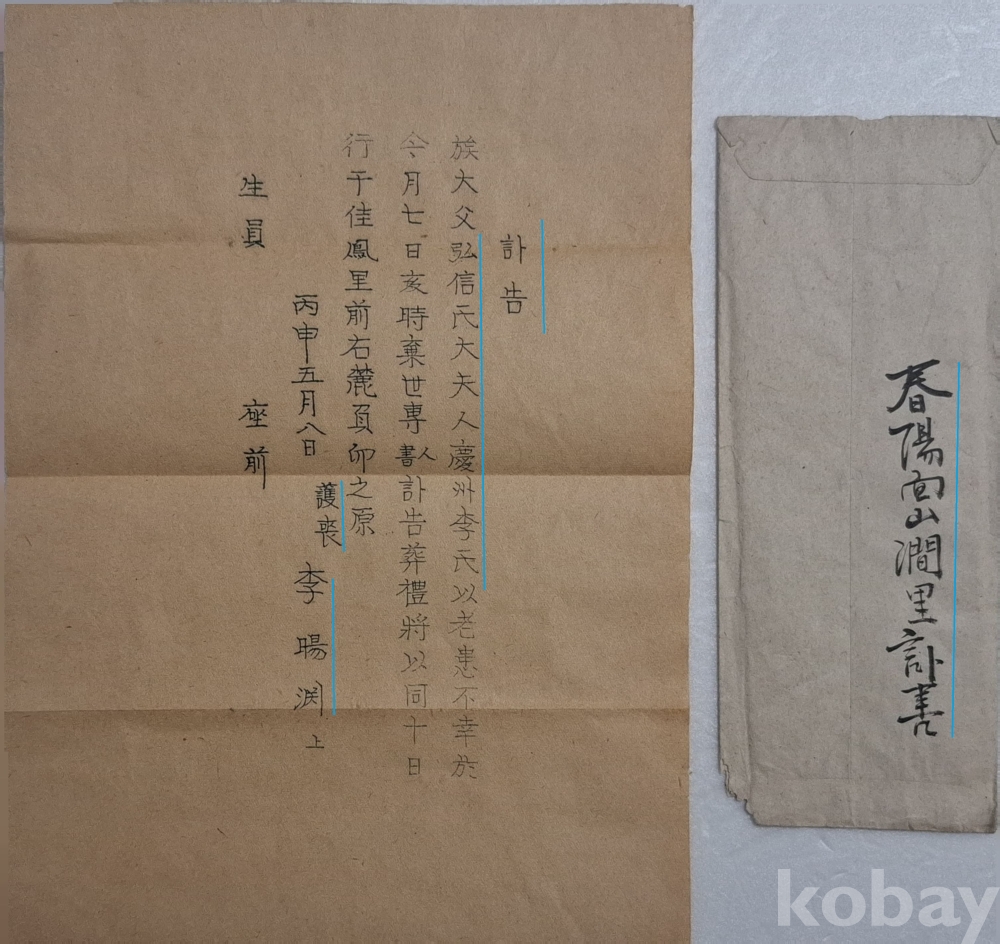 訃告
族大父弘信氏大夫人慶州李氏以老患不幸於
今月七日亥時棄世専人書訃告葬禮將以同十日
行于佳鳳里前右麓負卯之原
丙申五月八日
護喪 李暘渕 上
生員 座前
春陽面山澗里訃書
kobay